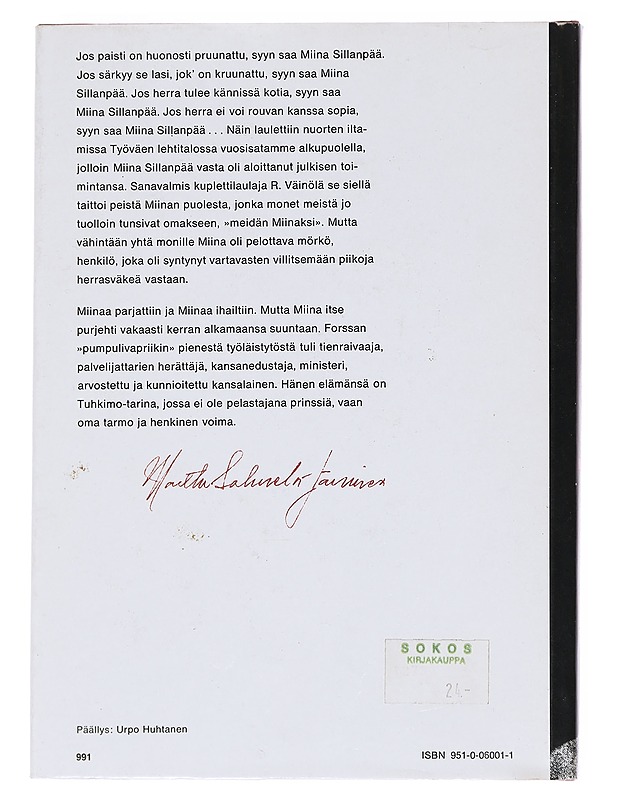 Jos paisti on huonosti pruunattu, syyn saa Miina Sillanpää.
Jos särkyy se lasi, jok' on kruunattu, syyn saa Miina
Sillanpää. Jos herra tulee kännissä kotia, syyn saa
Miina Sillanpää. Jos herra ei voi rouvan kanssa sopia,
syyn saa Miina Sillanpää . . . Näin laulettiin nuorten ilta-
missa Työväen lehtitalossa vuosisatamme alkupuolella,
jolloin Miina Sillanpää vasta oli aloittanut julkisen toi-
mintansa. Sanavalmis kuplettilaulaja R. Väinölä se siellä
taittoi peistä Miinan puolesta, jonka monet meistä jo
tuolloin tunsivat omakseen, »meidän Miinaksi». Mutta
vähintään yhtä monille Miina oli pelottava mörkö,
henkilö, joka oli syntynyt vartavasten villitsemään piikoja
herrasväkeä vastaan.
Miinaa parjattiin ja Miinaa ihailtiin. Mutta Miina itse
purjehti vakaasti kerran alkamaansa suuntaan. Forssan
»pumpulivapriikin» pienestä työläistytöstä tuli tienraivaaja,
palvelijattarien herättäjä, kansanedustaja, ministeri,
arvostettu ja kunnioitettu kansalainen. Hänen elämänsä on
Tuhkimo-tarina, jossa ei ole pelastajana prinssiä, vaan
oma tarmo ja henkinen voima.
Martta Salmela-Järvinen
SOKOS
KIRJAKAUPPA
24.-
Päällys: Urpo Huhtanen
991
ISBN 951-0-06001-1